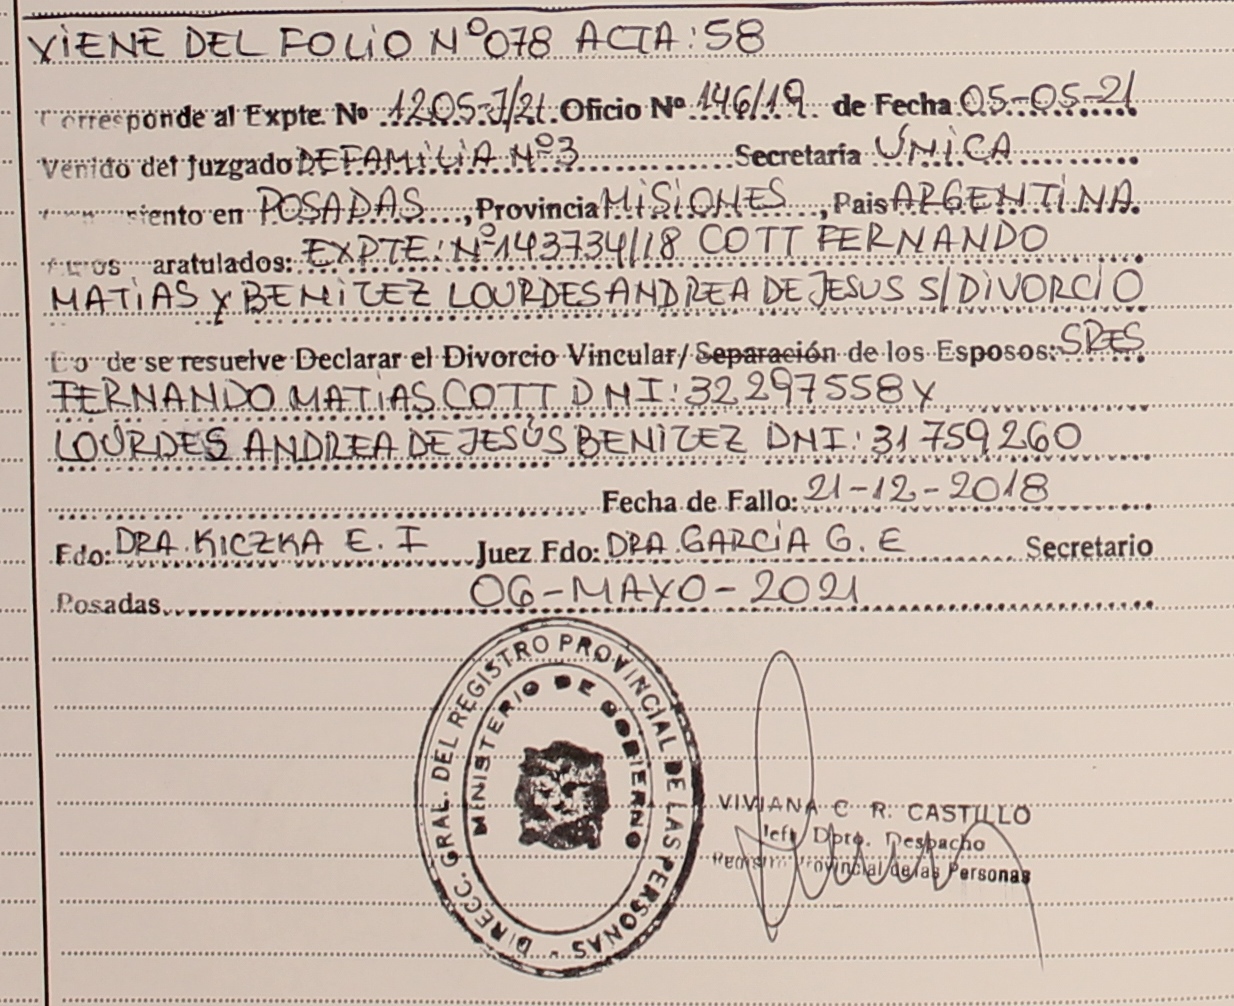 VIENE DEL FOLIO Nº 078 ACTA: 58
Corresponde al Expte. Nº 1205-J/21. Oficio Nº 146/19 de Fecha 05-05-21
Venido del Juzgado DE FAMILIA Nº 3 Secretaría ÚNICA
siento en POSADAS, Provincia MISIONES, Pais ARGENTINA.
aratulados: EXPTE: Nº 143734/18 COTT FERNANDO
MATIAS Y BENITEZ LOURDES ANDREA DE JESUS S/ DIVORCIO
de se resuelve Declarar el Divorcio Vincular/ Separación de los Esposos: SRES
FERNANDO MATIAS COTT DNI: 32297558 Y
LOURDES ANDREA DE JESÚS BENITEZ DNI: 31759260
Fecha de Fallo: 21-12-2018
Fdo: DRA. KICZKA E. I Juez Fdo: DRA. GARCIA G. E Secretario
Posadas 06-MAYO-2021
DIRECC. GRAL. DEL REGISTRO PROVINCIAL DE LAS PERSONAS -
MINISTERIO DE GOBIERNO
VIVIANA C. R. CASTILLO
Jefe Dpto. Despacho
Registro Provincial de las Personas